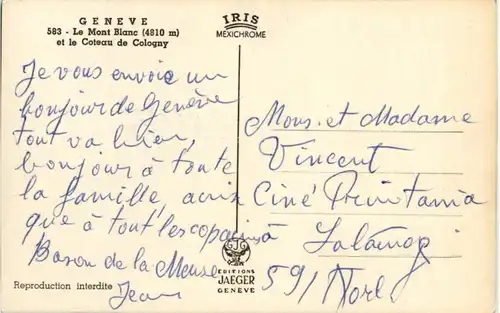 GENEVE
583 - Le Mont Blanc (4810 m)
et le Coteau de Cologny
IRIS
MEXICHROME
Je vous envoie un
bonjour de Genève
tout va bien,
bonjour à toute
la famille, ainsi
que à tout les copains
Baron de la Meuse
Jean
Mons. et Madame
Vincent
Ciné
à
59/ Nord
EDITIONS
JAEGER
GENEVE
Reproduction interdite